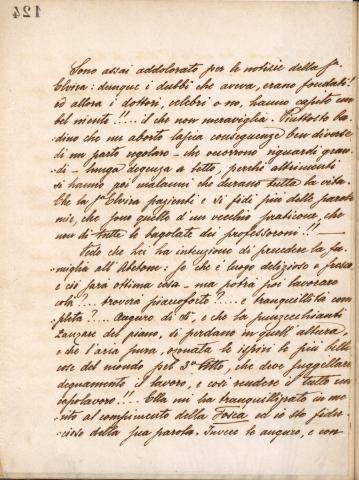 124
Sono assai addolorato per le notizie della Sa
Elvira: dunque i dubbi che aveva, erano fondati!
ed allora i dottori, celebri o no, hanno capito un
bel niente!!... il che non meraviglia. Piuttosto ba-
-dino che un aborto lascia conseguenze ben diverse
di un parto regolare — che occorrono riguardi gran-
di — lunga degenza a letto, perchè altrimenti
si hanno poi malanni che durano tutta la vita.
Che la Sa Elvira pazienti e si fidi più delle parole
mie, che sono quelle d'un vecchio praticone, che
non di tutte le bagolate dei professoroni!! —
Vedo che Lei ha intenzione di precedere la fa-
-miglia all'Abetone: so che è luogo delizioso e fresco
e ciò sarà ottima cosa — ma potrà poi lavorare
colà?.... troverà pianoforte?.... e tranquillità com-
pleta?.... Auguro di sì, e che le punzecchianti
zanzare del piano, si perdano in quell'altura,
e che l'aria pura, ozonata le ispiri le più belle
cose del mondo pel 3o atto, che deve suggellare
degnamente il lavoro, e così rendere il tutto un
capolavoro!!. Ella mi ha tranquillizzato in me-
-rito al compimento della Tosca ed io sto fidu-
-cioso della sua parola. Invece Le auguro, e con